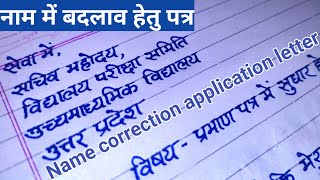 नाम में बदलाव हेतु पत्र
सेवा में,
सचिव महोदय,
विद्यालय परीक्षा समिति
गुच्यमाध्यमिक विद्यालय
उत्तर प्रदेश
विषय - प्रमाण पत्र में सुधार
Name correction application letter